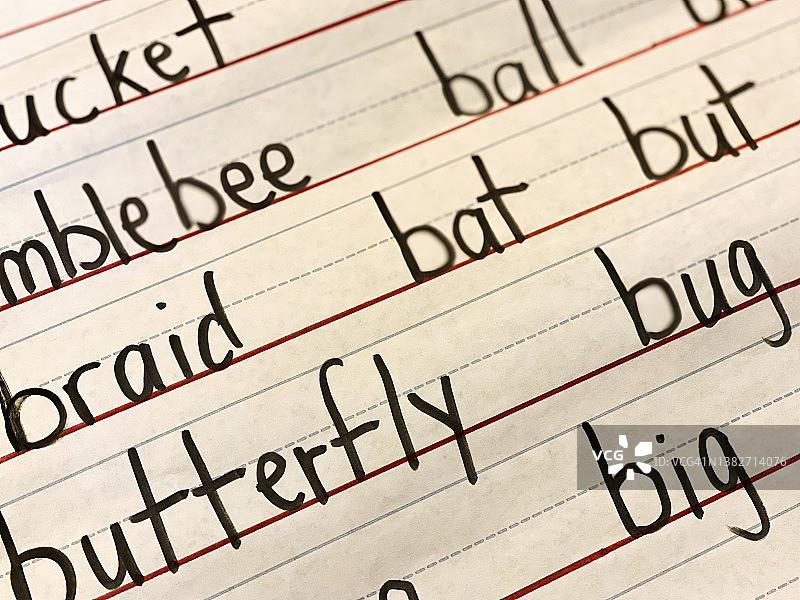 ucket ball
mblebee bat but
braid bug
butterfly big
VCG ID: VCG41N1382714076